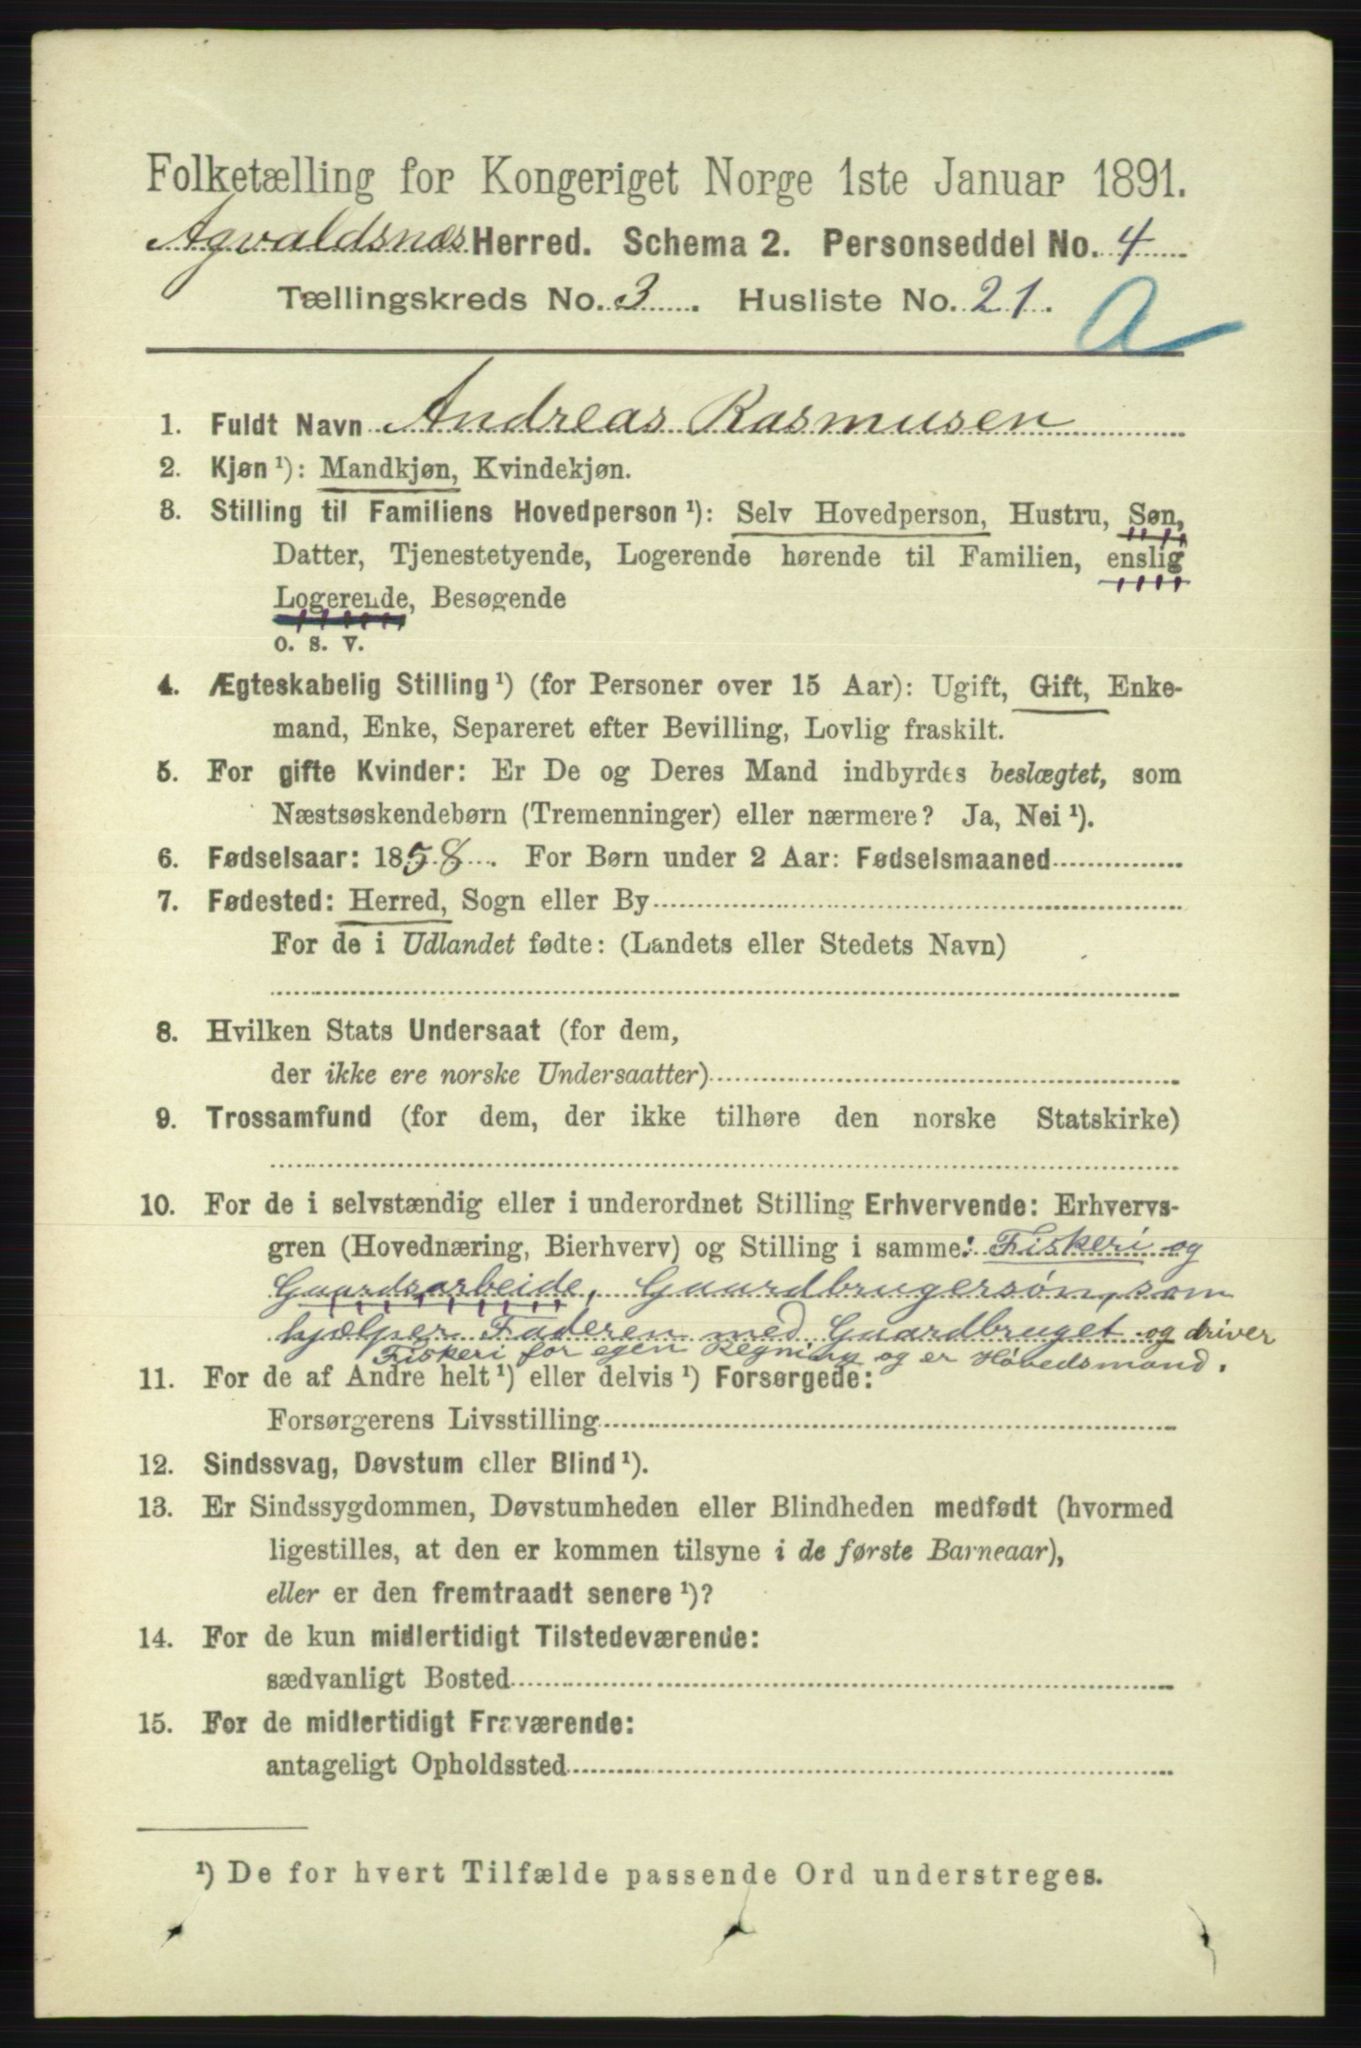 Folketælling for Kongeriget Norge 1ste Januar 1891.
Agvaldsnæs Herred. Schema 2. Personseddel No. 4
Tællingskreds No. 3. Husliste No. 21.
a
1. Fuldt Navn Andreas Rasmusen
2. Kjøn ¹): Mandkjøn, Kvindekjøn.
3. Stilling til Familiens Hovedperson ¹): Selv Hovedperson, Hustru, Søn,
Datter, Tjenestetyende, Logerende hørende til Familien, enslig
Logerende, Besøgende
o. s. v.
4. Ægteskabelig Stilling ¹) (for Personer over 15 Aar): Ugift, Gift, Enke-
mand, Enke, Separeret efter Bevilling, Lovlig fraskilt.
5. For gifte Kvinder: Er De og Deres Mand indbyrdes beslægtet, som
Næstsøskendebørn (Tremenninger) eller nærmere? Ja, Nei ¹).
6. Fødselsaar: 1858. For Børn under 2 Aar: Fødselsmaaned
7. Fødested: Herred, Sogn eller By
For de i Udlandet fødte: (Landets eller Stedets Navn)
8. Hvilken Stats Undersaat (for dem,
der ikke ere norske Undersaatter)
9. Trossamfund (for dem, der ikke tilhøre den norske Statskirke)
10. For de i selvstændig eller i underordnet Stilling Erhvervende: Erhvervs-
gren (Hovednæring, Bierhverv) og Stilling i samme: Fiskeri og
Gaardsarbeide, Gaardbrugersøn, som
hjælper Faderen med Gaardbruget og driver
Fiskeri for egen Regning og er Høvedsmand.
11. For de af Andre helt ¹) eller delvis ¹) Forsørgede:
Forsørgerens Livsstilling
12. Sindssvag, Døvstum eller Blind ¹).
13. Er Sindssygdommen, Døvstumheden eller Blindheden medfødt (hvormed
ligestilles, at den er kommen tilsyne i de første Barneaar),
eller er den fremtraadt senere ¹)?
14. For de kun midlertidigt Tilstedeværende:
sædvanligt Bosted
15. For de midlertidigt Fraværende:
antageligt Opholdssted
¹) De for hvert Tilfælde passende Ord understreges.